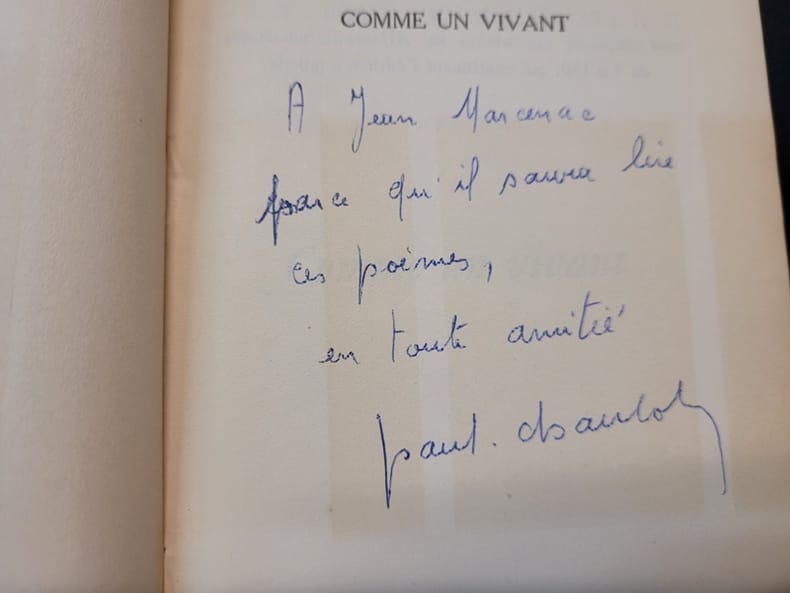 COMME UN VIVANT
A Jean Marcenac
parce qu'il saura lire
ces poèmes,
en toute amitié
paul. chaulot